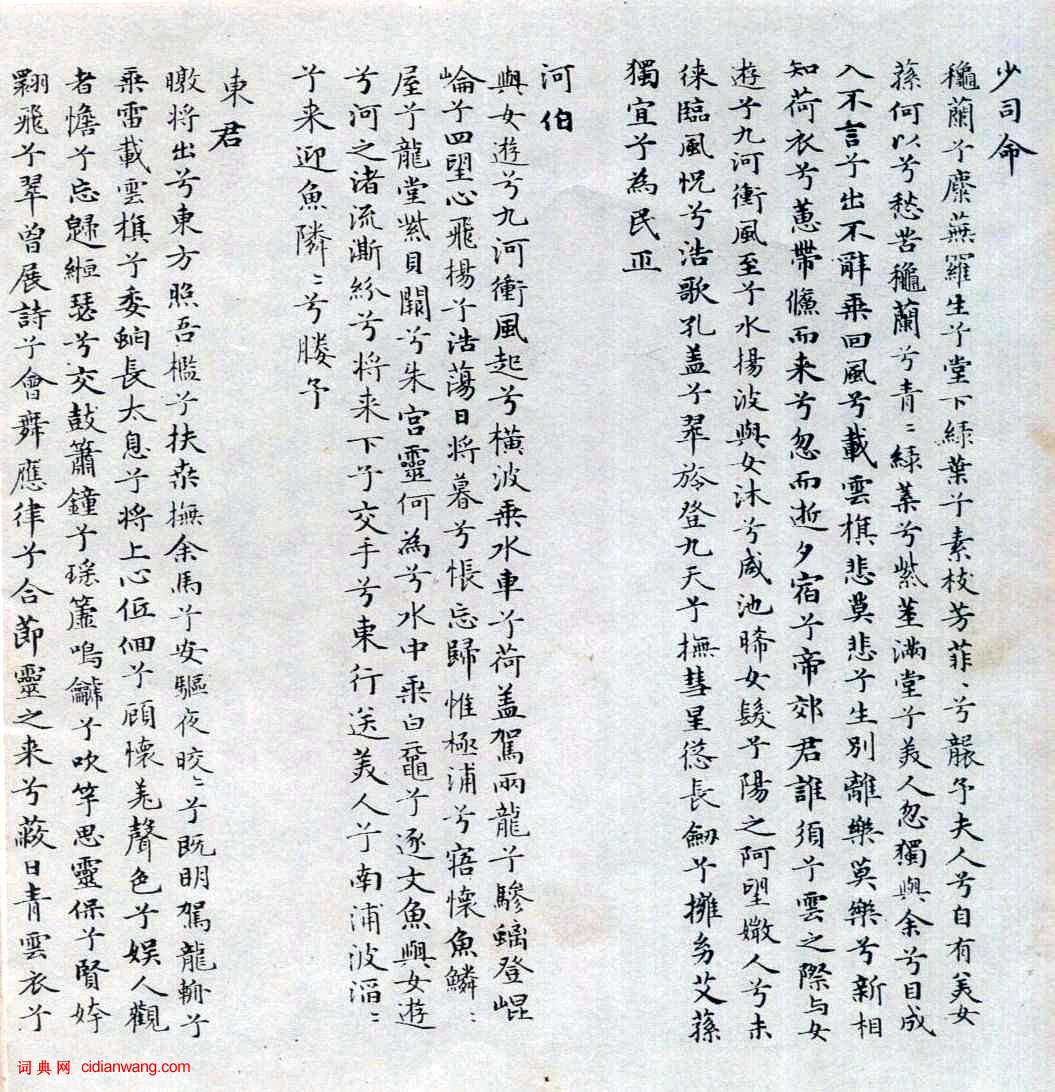 少司命
穐蘭兮麋蕪羅生兮堂下緑葉兮素枝芳菲〻兮襲予夫人兮自有美女
蓀何以兮愁苦穐蘭兮青〻緑葉兮紫莖滿堂兮美人忽獨與余兮目成
入不言兮出不辭乘回風兮載雲旗悲莫悲兮生別離樂莫樂兮新相
知荷衣兮蕙帶儵而来兮忽而逝夕宿兮帝郊君誰須兮雲之際与女
遊兮九河衝風至兮水揚波與女沐兮咸池晞女髮兮陽之阿望媺人兮未
徠臨風怳兮浩歌孔盖兮翠旍登九天兮撫彗星慫長劒兮擁㓜艾蓀
獨宜兮為民正
河伯
與女遊兮九河衝風起兮橫波乘水車兮荷盖駕兩龍兮驂螭登崐
崘兮四望心飛揚兮浩蕩日将暮兮悵忘歸惟極浦兮寤懷魚鱗〻
屋兮龍堂紫貝闕兮朱宮靈何為兮水中乘白黿兮逐文魚與女遊
兮河之渚流澌紛兮将来下子交手兮東行送美人兮南浦波滔〻
兮来迎魚隣〻兮媵予
東君
暾将出兮東方照吾檻兮扶桒撫余馬兮安驅夜晈〻兮既明駕龍輈兮
乘雷載雲旗兮委蛇長太息兮将上心低佪兮顧懷羌聲色兮娱人觀
者憺兮忘歸緪瑟兮交鼓簫鐘兮瑤簴鳴龥兮吹竽思靈保兮賢姱
翾飛兮翠曾展詩兮會舞應律兮合節靈之来兮蔽日青雲衣兮
词典网 cidianwang.com